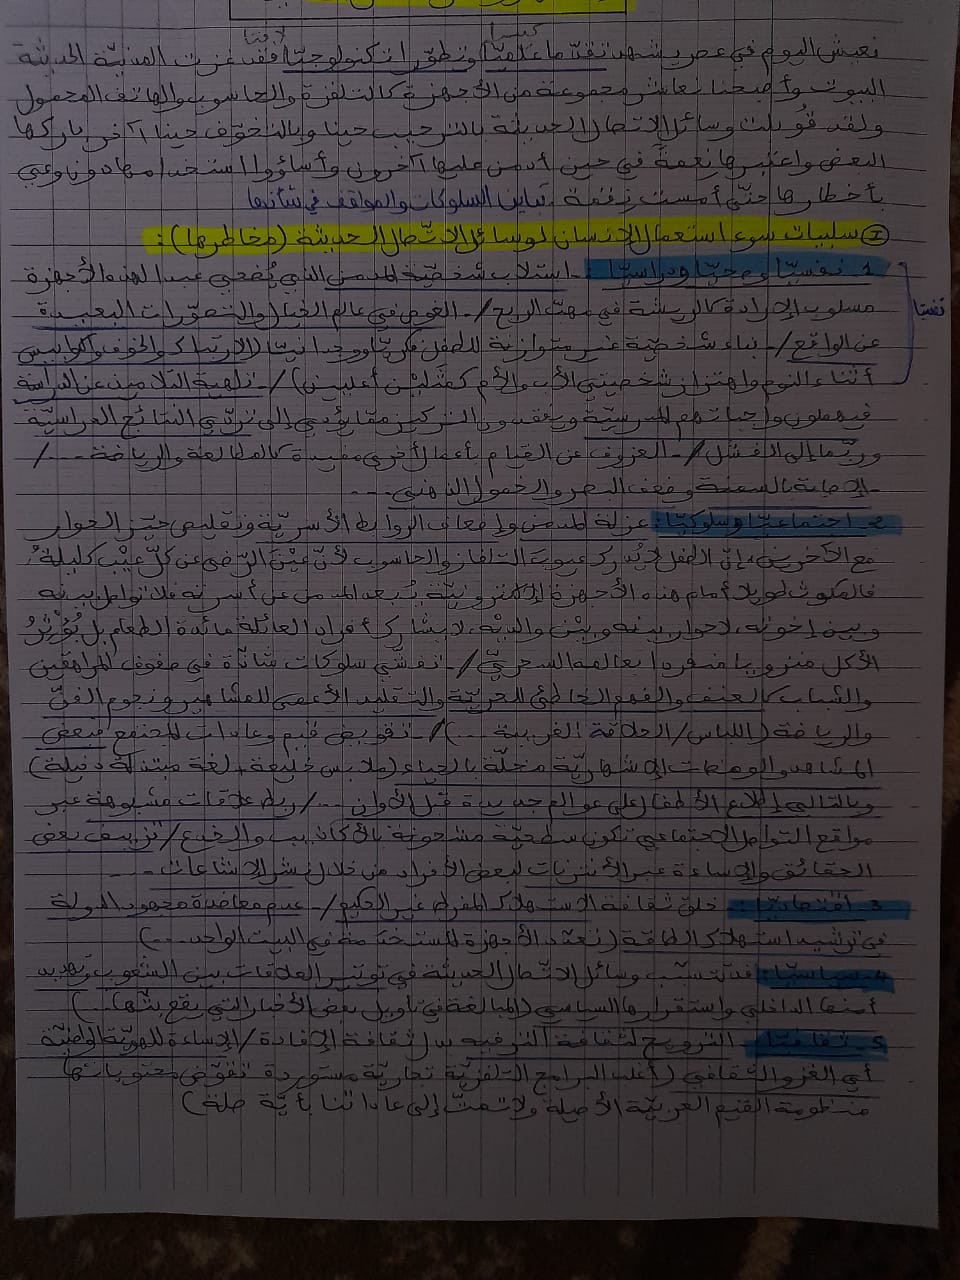 كبيرا لافتا
نعيش اليوم في عصر يشهد تقدّما علميّا وتطوّرا تكنولوجيّا فقد غزت المدنيّة الحديثة
البيوت وأصبحنا نعاشر مجموعة من الأجهزة كالتلفزة والحاسوب والهاتف المحمول
ولقد قوبلت وسائل الاتصال الحديثة بالترحيب حينا وبالتخوّف حينا آخر باركها
البعض واعتبرها نعمة في حين أدمن عليها آخرون وأساؤوا استخدامها دون وعي
بأخطارها حتّى أمست نقمة. تباين السلوكات والمواقف في شأنها
I سلبيات سوء استعمال الإنسان لوسائل الاتّصال الحديثة (مخاطرها):
1- نفسيّا وصحيّا ودراسيّا: - استلاب شخصيّة المدمن الذي يُضحي عبدا لهذه الأجهزة
نفسيّا
مسلوب الإرادة كالريشة في مهبّ الريح/- الغوص في عالم الخيال والتصوّرات البعيدة
عن الواقع/- بناء شخصيّة غير متوازنة للطفل فكريّا ووجدانيّا (الارتباك والخوف والكوابيس
أثناء النوم واهتزاز شخصيتي الأب والأم كمثليْن أعليين)/- تلهية التلاميذ عن الدراسة
فيهملون واجباتهم المدرسيّة ويفقدون التركيز ممّا يؤدّي إلى تردّي النتائج الدراسيّة
وربّما إلى الفشل/- العزوف عن القيام بأعمال أخرى مفيدة كالمطالعة والرياضة..../
- الإصابة بالسمنة وضعف البصر والخمول الذهني....
2- اجتماعيّا وسلوكيّا: عزلة المدمن وإضعاف الروابط الأسريّة وتقليص حيّز الحوار
مع الآخرين، إنّ الطفل لا يُدرك عيوب التلفاز والحاسوب لأنّ عيْن الرّضى عن كلّ عيْب كليلةٌ
فالمكوث طويلا أمام هذه الأجهزة الإلكترونيّة يُبعد المدمن عن أسرته فلا تواصل بينه
وبين إخوته، لا حوار بينه وبيْن والديْه، لا يشارك أفراد العائلة مائدة الطعام بل يُؤْثِرُ
الأكل منزويا منفردا بعالمه السحريّ/- تفشّي سلوكات شاذّة في صفوف المراهقين
والشباب كالعنف والفهم الخاطئ للحريّة والتقليد الأعمى للمشاهير ونجوم الفنّ
والرياضة (اللباس/الحلاقة الغريبة...)/- تقويض قيم وعادات المجتمع فبعض
المشاهد والومضات الإشهاريّة مخلّة بالحياء (ملابس خليعة، لغة مبتذلة دخيلة)
وبالتالي إطلاع الأطفال على عوالم جديدة قبل الأوان.../ ربط علاقات مشبوهة عبر
مواقع التواصل الاجتماعي تكون سطحيّة مشحونة بالأكاذيب والخدع/ تزييف بعض
الحقائق والإساءة عبر الأنترنات لبعض الأفراد من خلال نشر الإشاعات....
3- اقتصاديّا: - خلق ثقافة الاستهلاك المفرط غير الحكيم/- عدم معاضدة مجهود الدولة
في ترشيد استهلاك الطاقة (تعدّد الأجهزة المستخدمة في البيت الواحد...)
4- سياسيّا: قد تتسبّب وسائل الاتّصال الحديثة في توتير العلاقات بين الشّعوب وتهديد
أمنها الداخلي واستقرارها السياسي (المبالغة في تأويل بعض الأخبار التي يقع بثّها..)
5- ثقافيّا: - الترويج لثقافة الترفيه بدل ثقافة الإفادة/ الإساءة للهويّة الوطنيّة
أي الغزو الثقافي (أغلب البرامج التلفزيّة تجاريّة مستوردة تقوّض محتوياتها
منظومة القيم العربيّة الأصيلة ولا تمتّ إلى عاداتنا بأيّة صلة)